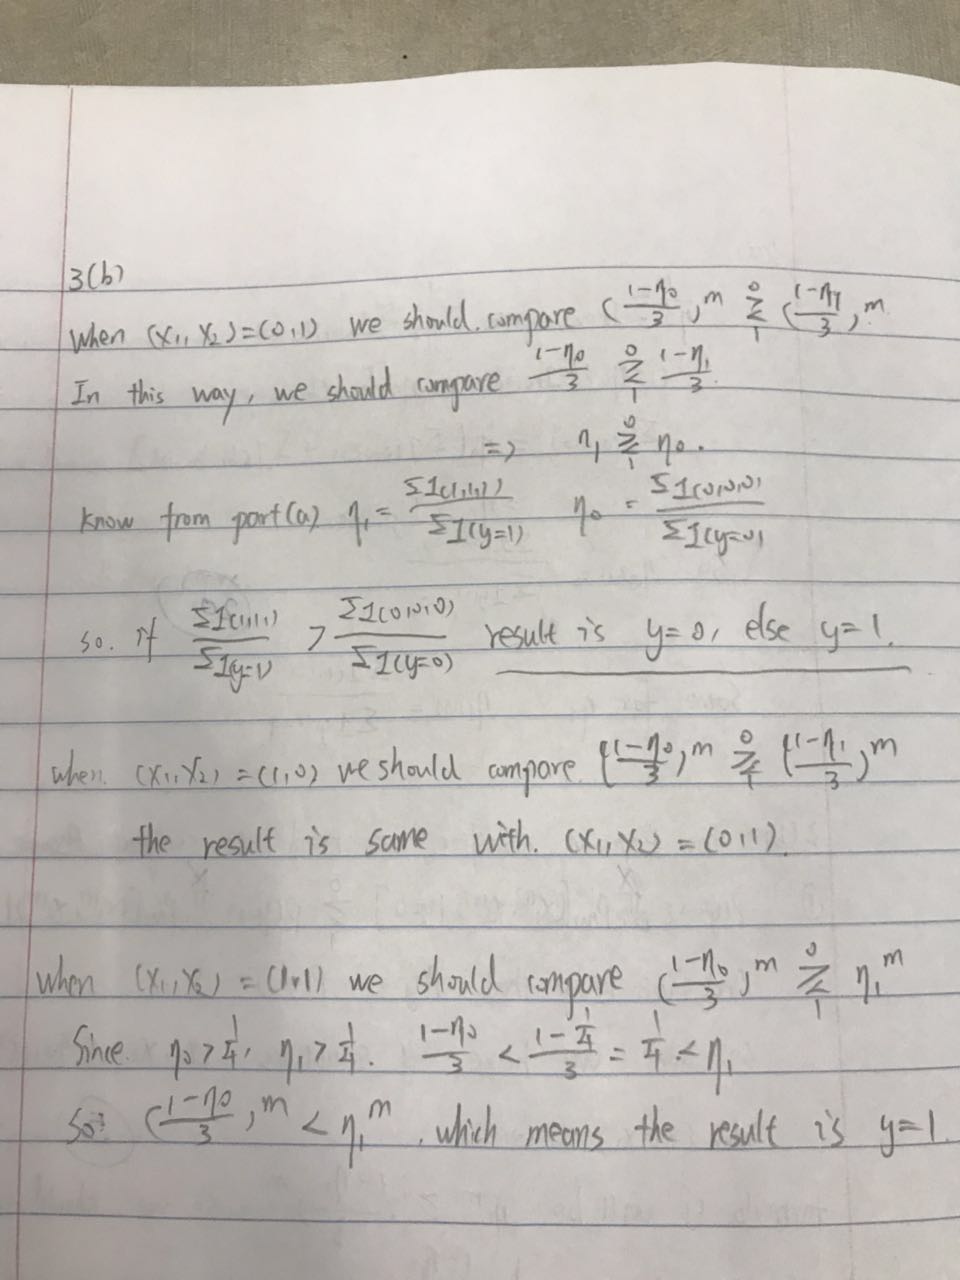 3(b)
When (x₁, x₂)=(0,1) we should compare (\frac{1-η₀}{3})^m ≷ (0 above, 1 below) (\frac{1-η₁}{3})^m
In this way, we should compare \frac{1-η₀}{3} ≷ (0 above, 1 below) \frac{1-η₁}{3}
=> η₁ ≷ (0 above, 1 below) η₀.
know from part(a) η₁ = \frac{Σ1(1,1,1)}{Σ1(y=1)} η₀ = \frac{Σ1(0,0,0)}{Σ1(y=0)}
so. if \frac{Σ1(1,1,1)}{Σ1(y=1)} > \frac{Σ1(0,0,0)}{Σ1(y=0)} result is y=0, else y=1.
when. (x₁, x₂) = (1,0) we should compare (\frac{1-η₀}{3})^m ≷ (0 above, 1 below) (\frac{1-η₁}{3})^m
the result is same with. (x₁, x₂) = (0,1).
when (x₁, x₂) = (1,1) we should compare (\frac{1-η₀}{3})^m ≷ (0 above, 1 below) η₁^m
Since. η₀ > \frac{1}{4}, η₁ > \frac{1}{4}. \frac{1-η₀}{3} < \frac{1-\frac{1}{4}}{3} = \frac{1}{4} < η₁
So: (\frac{1-η₀}{3})^m < η₁^m, which means the result is y=1.